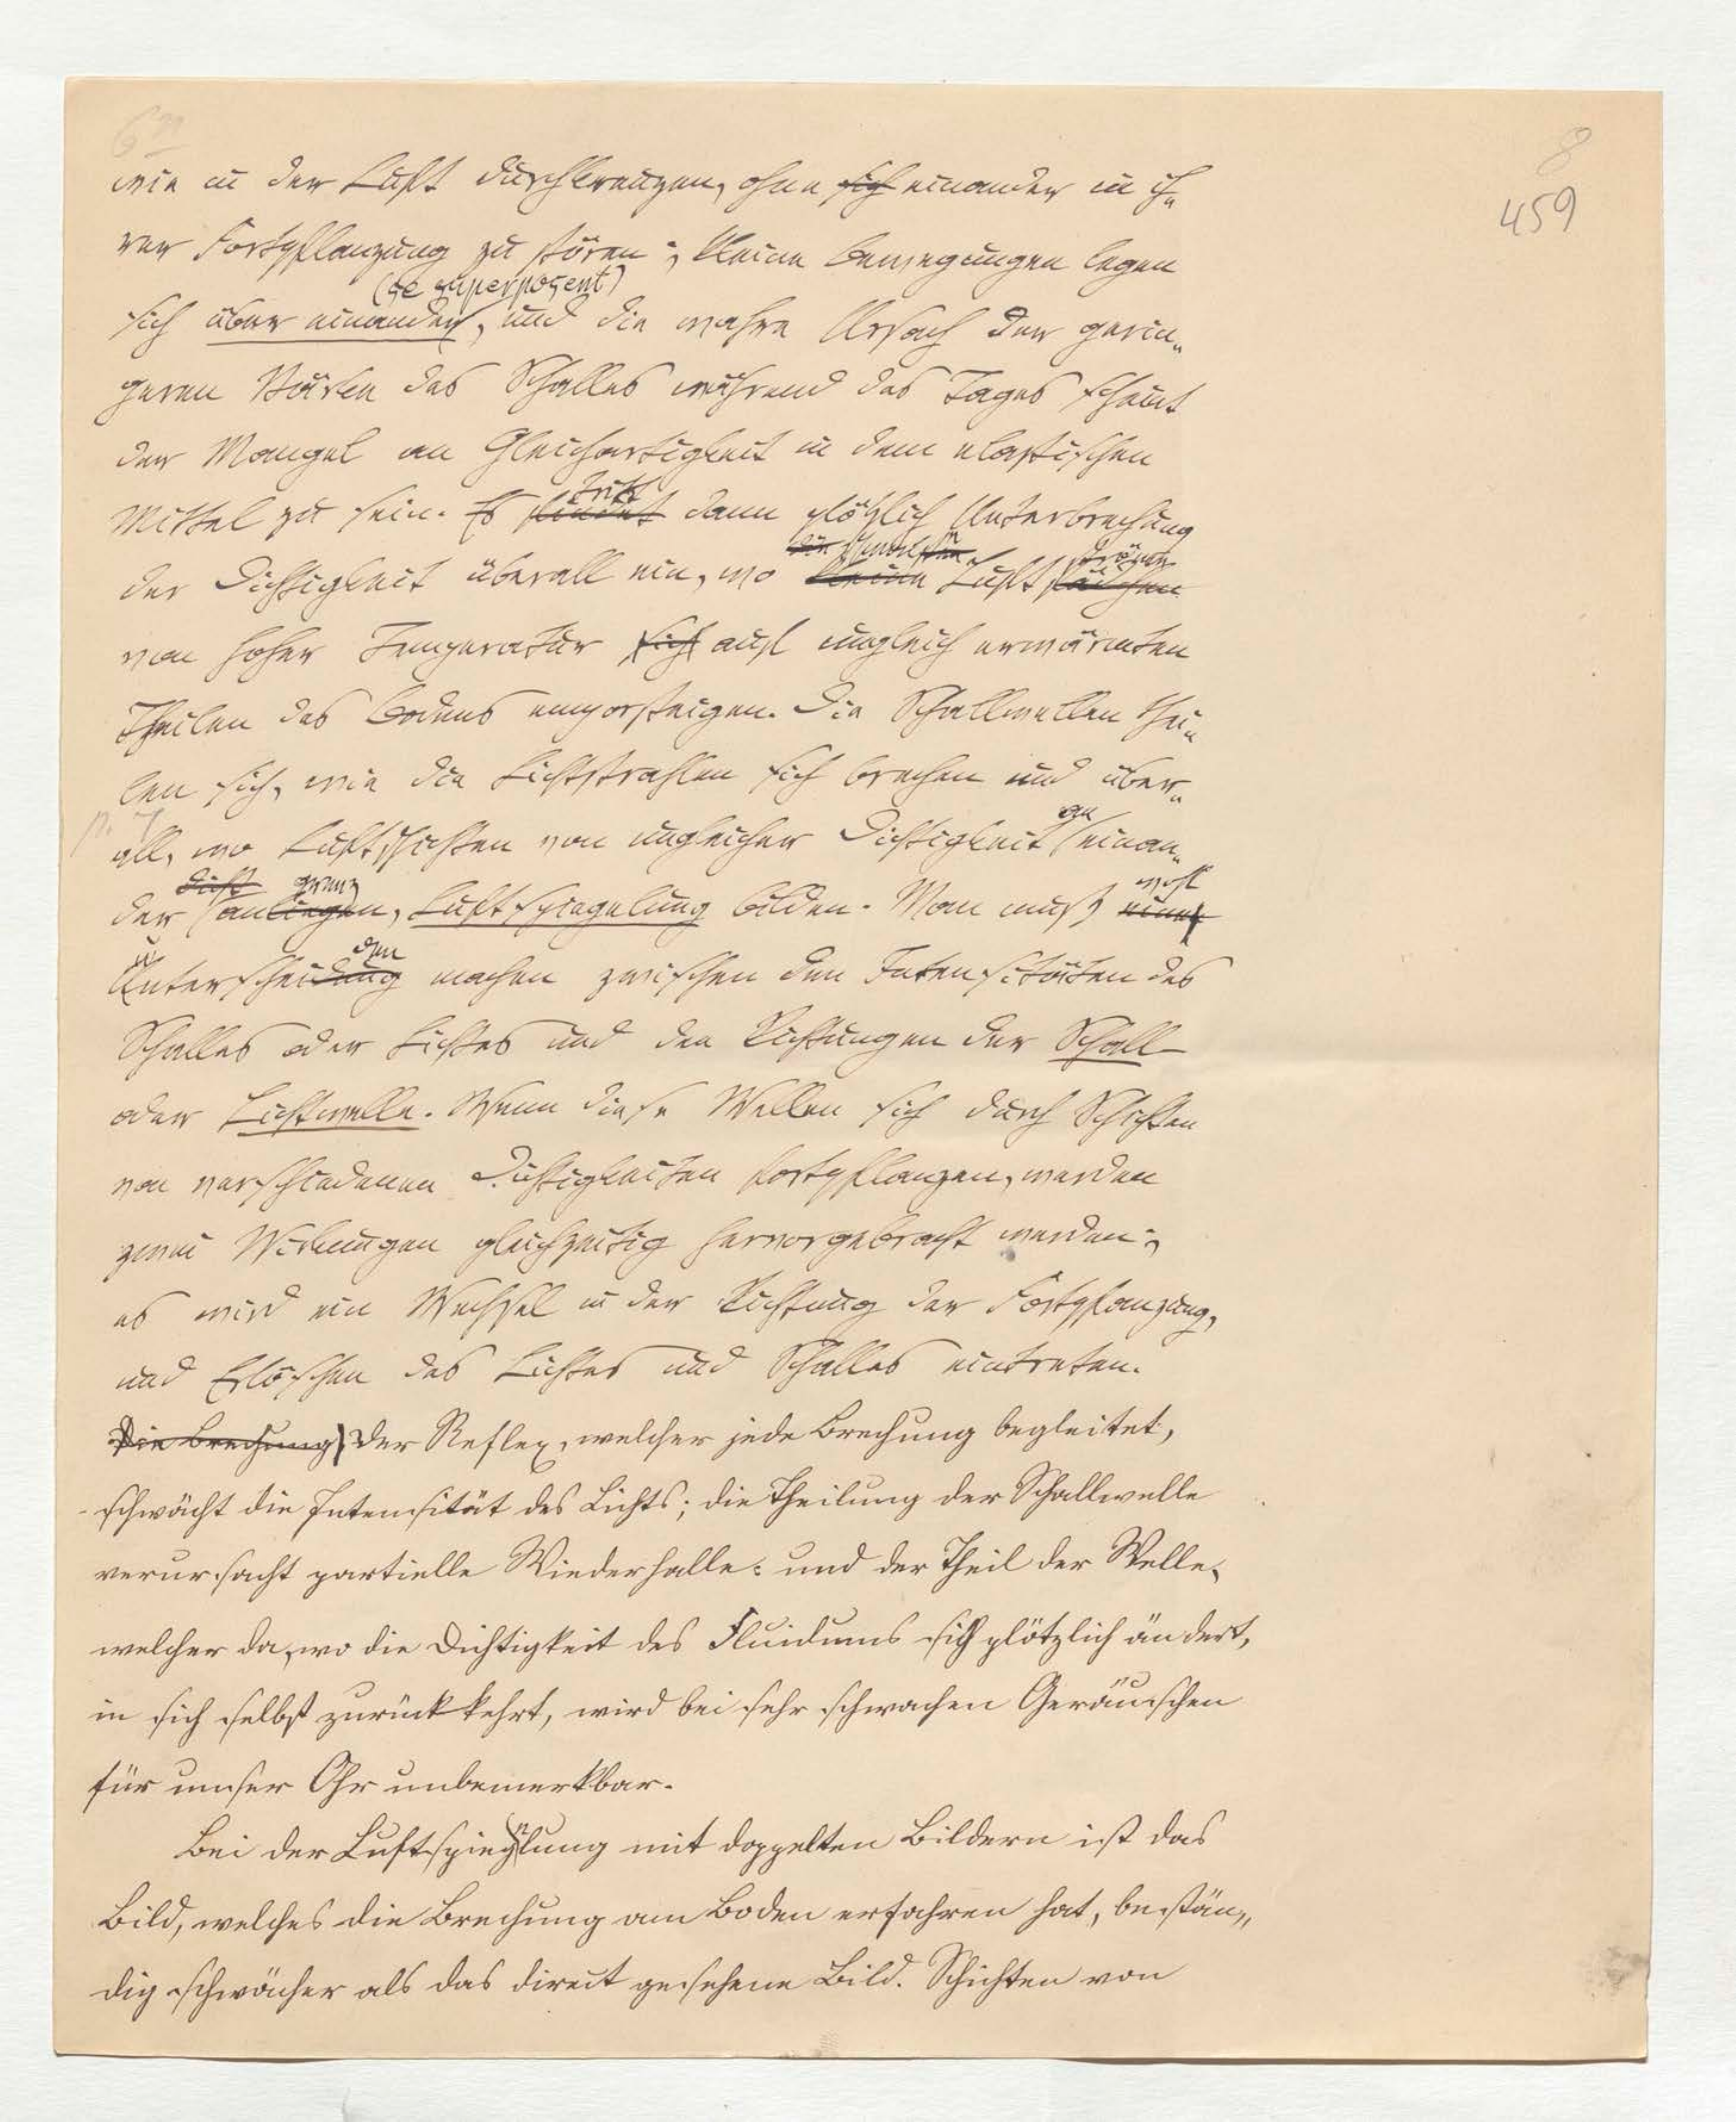 8
459
wie in der Luft durchkreuzen, ohne sich einander in ih-
rer Fortpflanzung zu stören; kleine Bewegungen legen
(se superposent)
sich über einander, und die wahre Ursach der gerin-
geren Stärke des Schalles während des Tages scheint
der Mangel an Gleichartigkeit in dem elastischen
tritt
Mittel zu sein. Es findet dann plötzlich Unterbrechung
die schmalsten ströme
der Dichtigkeit überall ein, wo kleine Luft
von hoher Temperatur sich auf ungleich erwärmten
Theilen des Bodens emporsteigen. Die Schallwellen thei-
len sich, wie die Lichtstrahlen sich brechen und über-
an
all, wo Luftschichten von ungleicher Dichtigkeit einan-
dicht grenz wohl
der anliegen, Luftspiegelung bilden. Man muß einen
u den
Unterscheidung machen zwischen den Intensitäten des
Schalles oder Lichtes und den Richtungen der Schall-
oder Lichtwelle. Wenn diese Wellen sich durch Schichten
von verschiedenen Dichtigkeiten fortpflanzen, werden
zwei Wirkungen gleichzeitig hervorgebracht werden;
es wird ein Wechsel in der Richtung der Fortpflanzung,
und Erlöschen des Lichtes und Schalles eintreten.
Die Brechung Der Reflex, welcher jede Brechung begleitet,
schwächt die Intensität des Lichts; die Theilung der Schallwelle
verursacht partielle Wiederhalle: und der Theil der Welle,
welcher da, wo die Dichtigkeit des Fluidums sich plötzlich ändert,
in sich selbst zurückkehrt, wird bei sehr schwachen Geräuschen
für unser Ohr unbemerkbar.
Bei der Luftspieglung mit doppelten Bildern ist das
Bild, welches die Brechung am Boden erfahren hat, bestän-
dig schwächer als das direct gesehene Bild. Schichten von